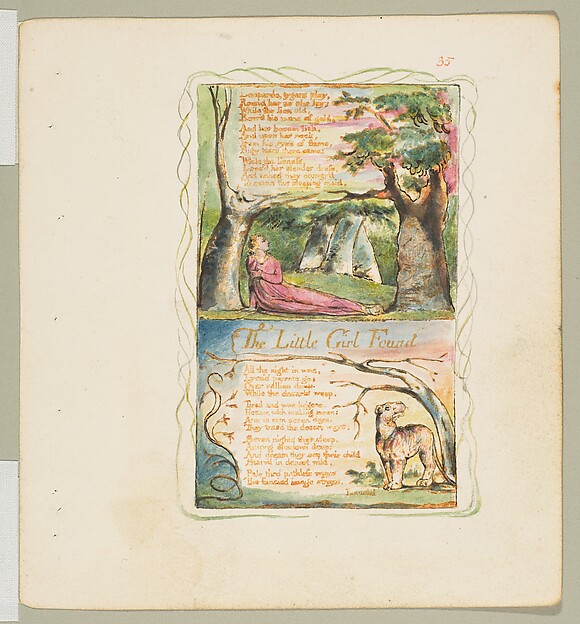 35
Leopards, tygers play,
Round her as she lay;
While the lion old,
Bow'd his mane of gold,
And her bosom lick,
And upon her neck,
From his eyes of flame,
Ruby tears there came;
While the lioness,
Loos'd her slender dress,
And naked they convey'd
To caves the sleeping maid.
The Little Girl Found
All the night in woe,
Lyca's parents go:
Over vallies deep,
While the desarts weep.
Tired and woe-begone,
Hoarse with making moan:
Arm in arm seven days,
They trac'd the desart ways.
Seven nights they sleep,
Among shadows deep:
And dream they see their child
Starv'd in desart wild.
Pale thro pathless ways
The fancied image strays,